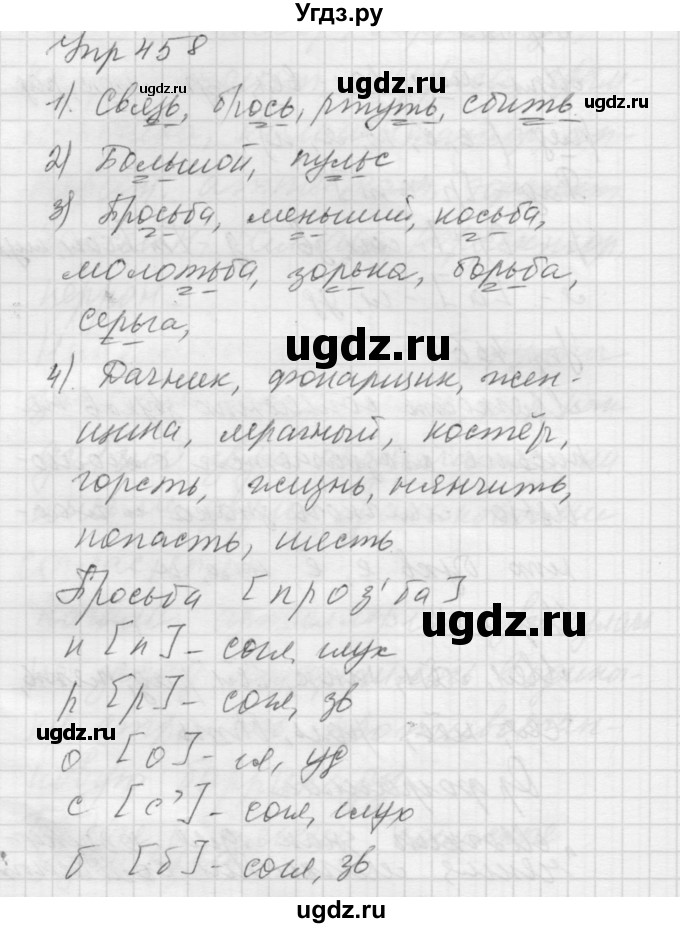 Угдз.ру
Упр 458
ugdz.ru
1). Связь, брось, ртуть, сбить ugdz.ru
ugdz.ru
2) Большой, пульс
3) Просьба, меньший, косьба,
молотьба, зорька, борьба,
серьга,
ugdz.ru
4). Дачник, фонарщик, жен-
щина, мрачный, костёр,
горсть, жизнь, нянчить,
попасть, шесть
Просьба [проз'ба]
ugdz.ru
п [п] - согл, глух
р [р] - согл, зв
ugdz.ru
о [о] - гл, уд
с [с'] - согл, глух
б [б] - согл, зв
ugdz.ru
ugdz.ru